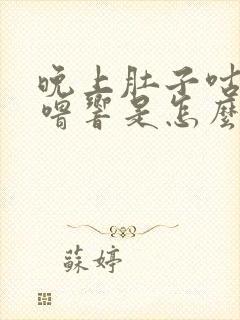 晚上肚子咕
嚕響是怎麼
蘇婷